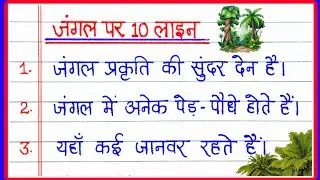 जंगल पर 10 लाइन
1. जंगल प्रकृति की सुंदर देन है।
2. जंगल में अनेक पेड़-पौधे होते हैं।
3. यहाँ कई जानवर रहते हैं।